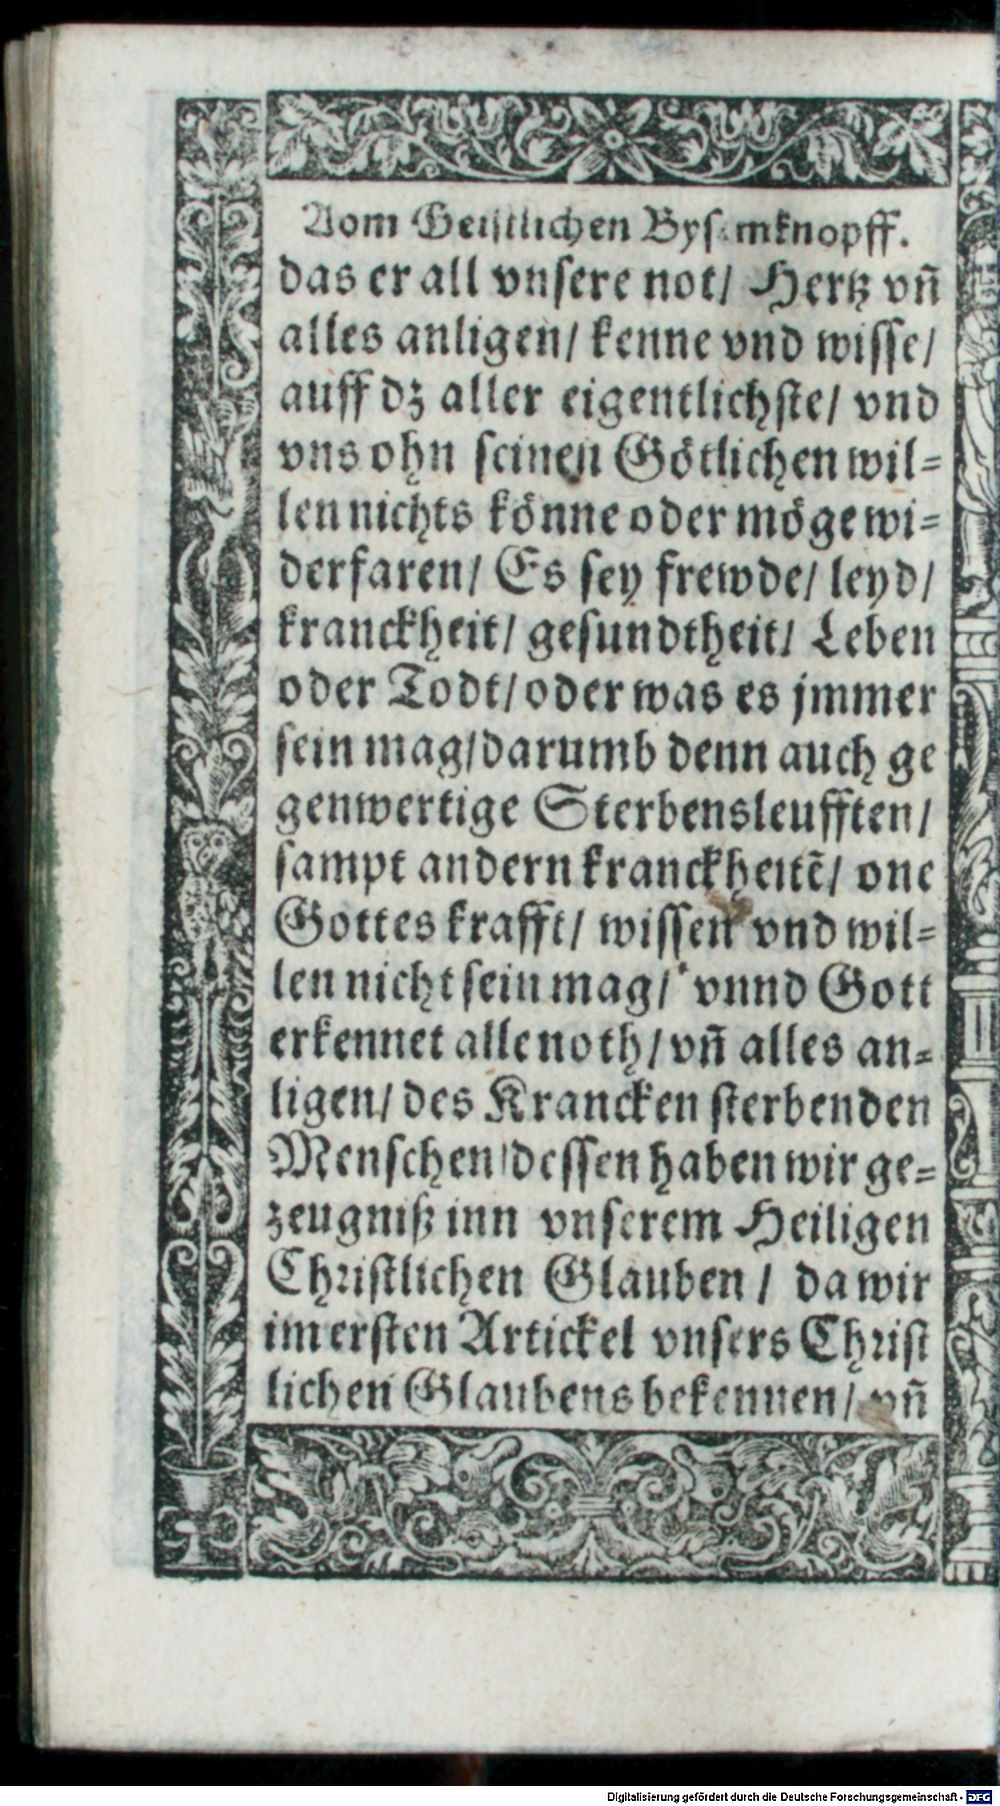 Vom Geistlichen Bysamknopff.
das er all vnsere not/ Hertz vn̄
alles anligen/ kenne vnd wisse/
auff dz aller eigentlichste/ vnd
vns ohn seinen Götlichen wil=
len nichts könne oder möge wi=
derfaren/ Es sey frewde/ leyd/
kranckheit/ gesundtheit/ Leben
oder Todt/ oder was es jmmer
sein mag/darumb denn auch ge
genwertige Sterbensleufften/
sampt andern kranckheitē/ one
Gottes krafft/ wissen vnd wil=
len nicht sein mag/ vnnd Gott
erkennet alle noth/ vn̄ alles an=
ligen/ des Krancken sterbenden
Menschen/dessen haben wir ge=
zeugniß inn vnserem Heiligen
Christlichen Glauben/ da wir
im ersten Artickel vnsers Christ
lichen Glaubens bekennen/ vn̄
Digitalisierung gefördert durch die Deutsche Forschungsgemeinschaft - DFG